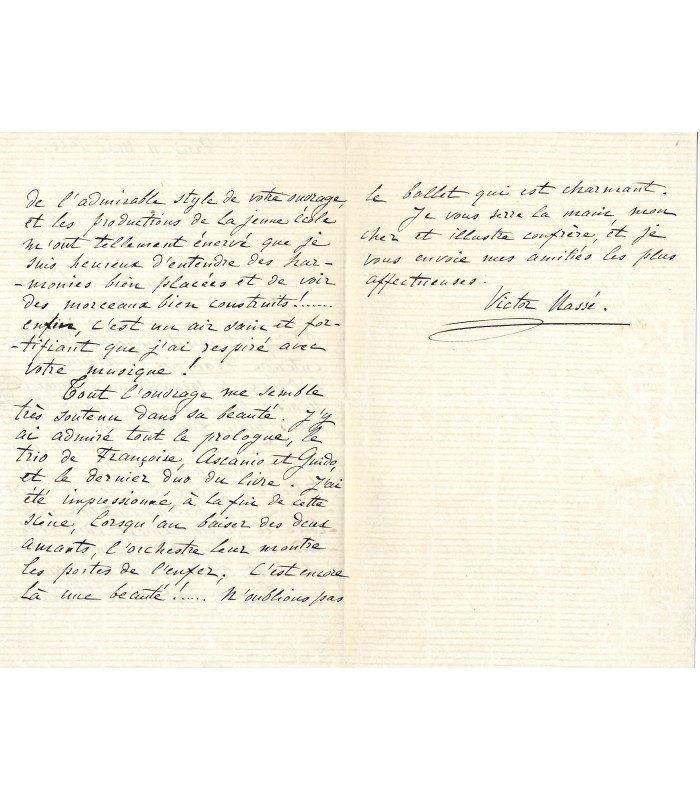 de l'admirable style de votre ouvrage,
et les productions de la jeune école
m'ont tellement énervé que je
suis heureux d'entendre des har-
-monies bien placées et de voir
des morceaux bien construits!......
enfin, c'est un air sain et for-
-tifiant que j'ai respiré avec
votre musique!
Tout l'ouvrage me semble
très soutenu dans sa beauté. J'y
ai admiré tout le prologue, le
trio de Françoise, Ascanio et Guido,
et le dernier duo du livre. J'ai
été impressionné, à la fin de cette
scène, lorsqu'au baiser des deux
amants, l'orchestre leur montre
les portes de l'enfer. C'est encore
là une beauté!..... N'oublions pas
le ballet qui est charmant.
Je vous serre la main, mon
cher et illustre confrère, et je
vous envoie mes amitiés les plus
affectueuses.
Victor Massé.